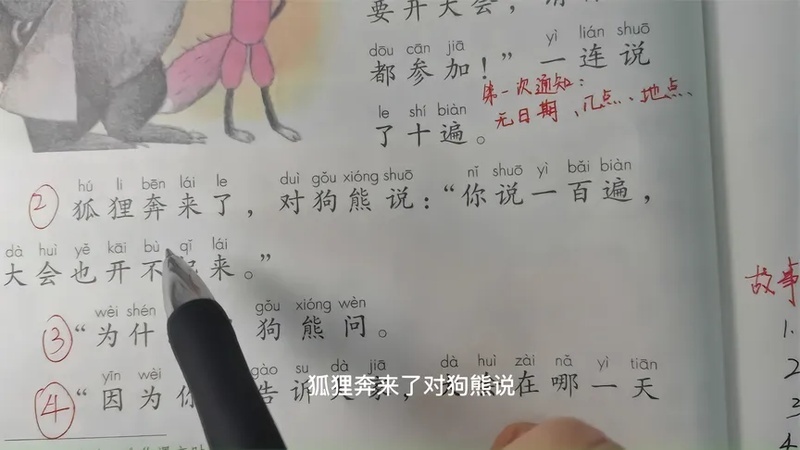 要开大会，
dōu cān jiā yì lián shuō
都参加！”一连说
第一次通知：
无日期、几点、地点、
le shí biàn
了十遍。
hú li bēn lái le duì gǒu xióng shuō nǐ shuō yì bǎi biàn
② 狐狸奔来了，对狗熊说：“你说一百遍，
dà huì yě kāi bù qǐ lái
大会也开不起来。”
wèi shén gǒu xióng wèn
③ “为什 狗熊问。
yīn wèi gào su dà jiā dà huì zài nǎ yì tiān
④ “因为你 告诉 在哪一天
狐狸奔来了对狗熊说
故事
1.
2
3
4